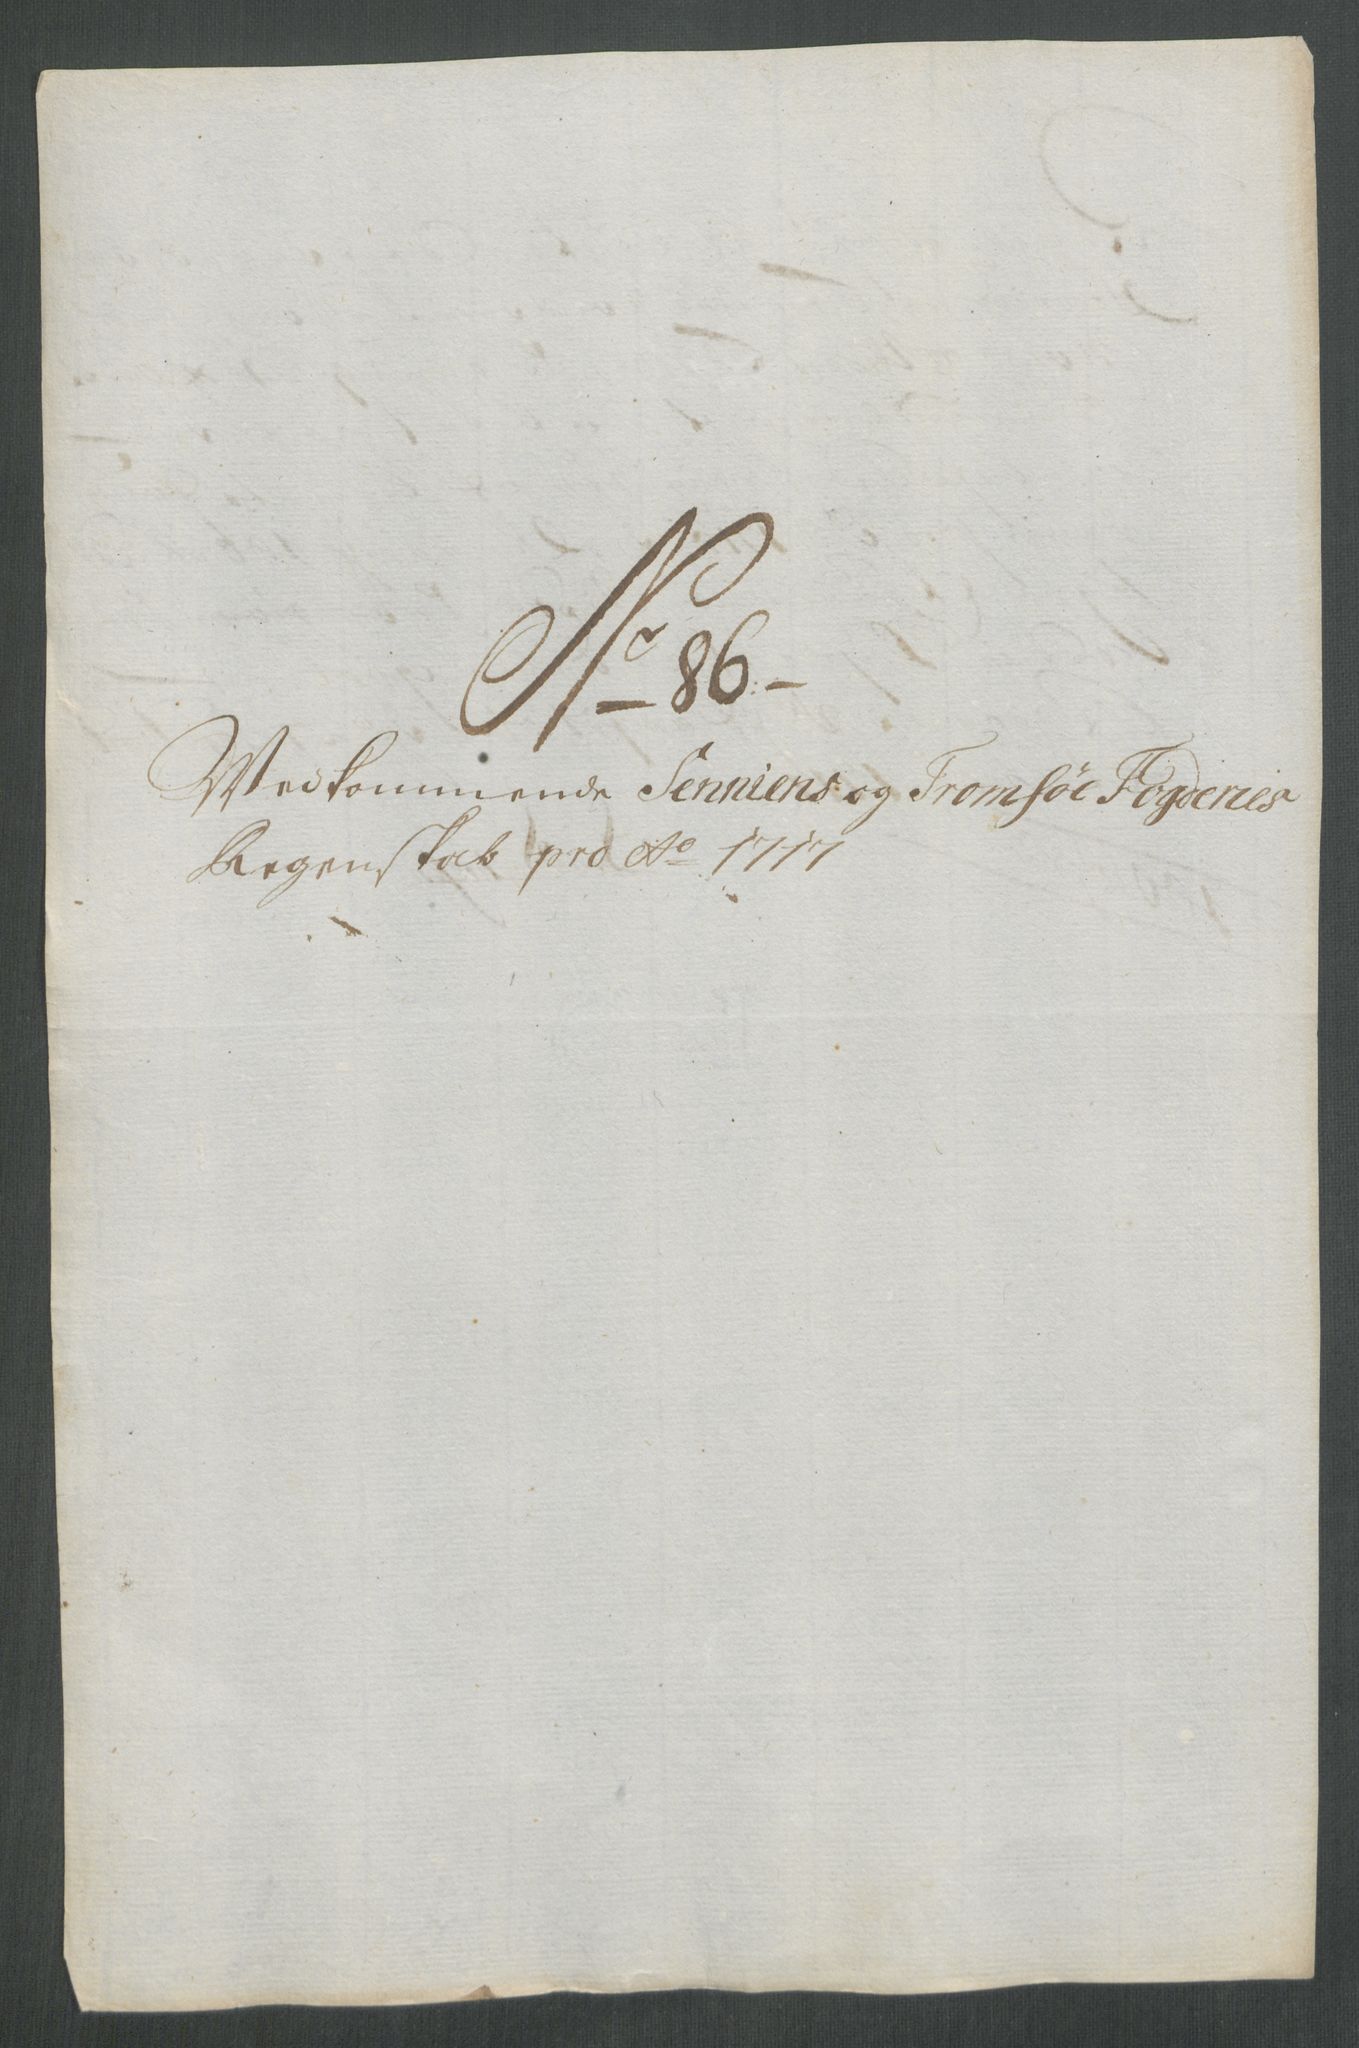 No 86.
Wedkommende Senniens og Tromsöe Fogderies
Regenskab pro Ao 1717